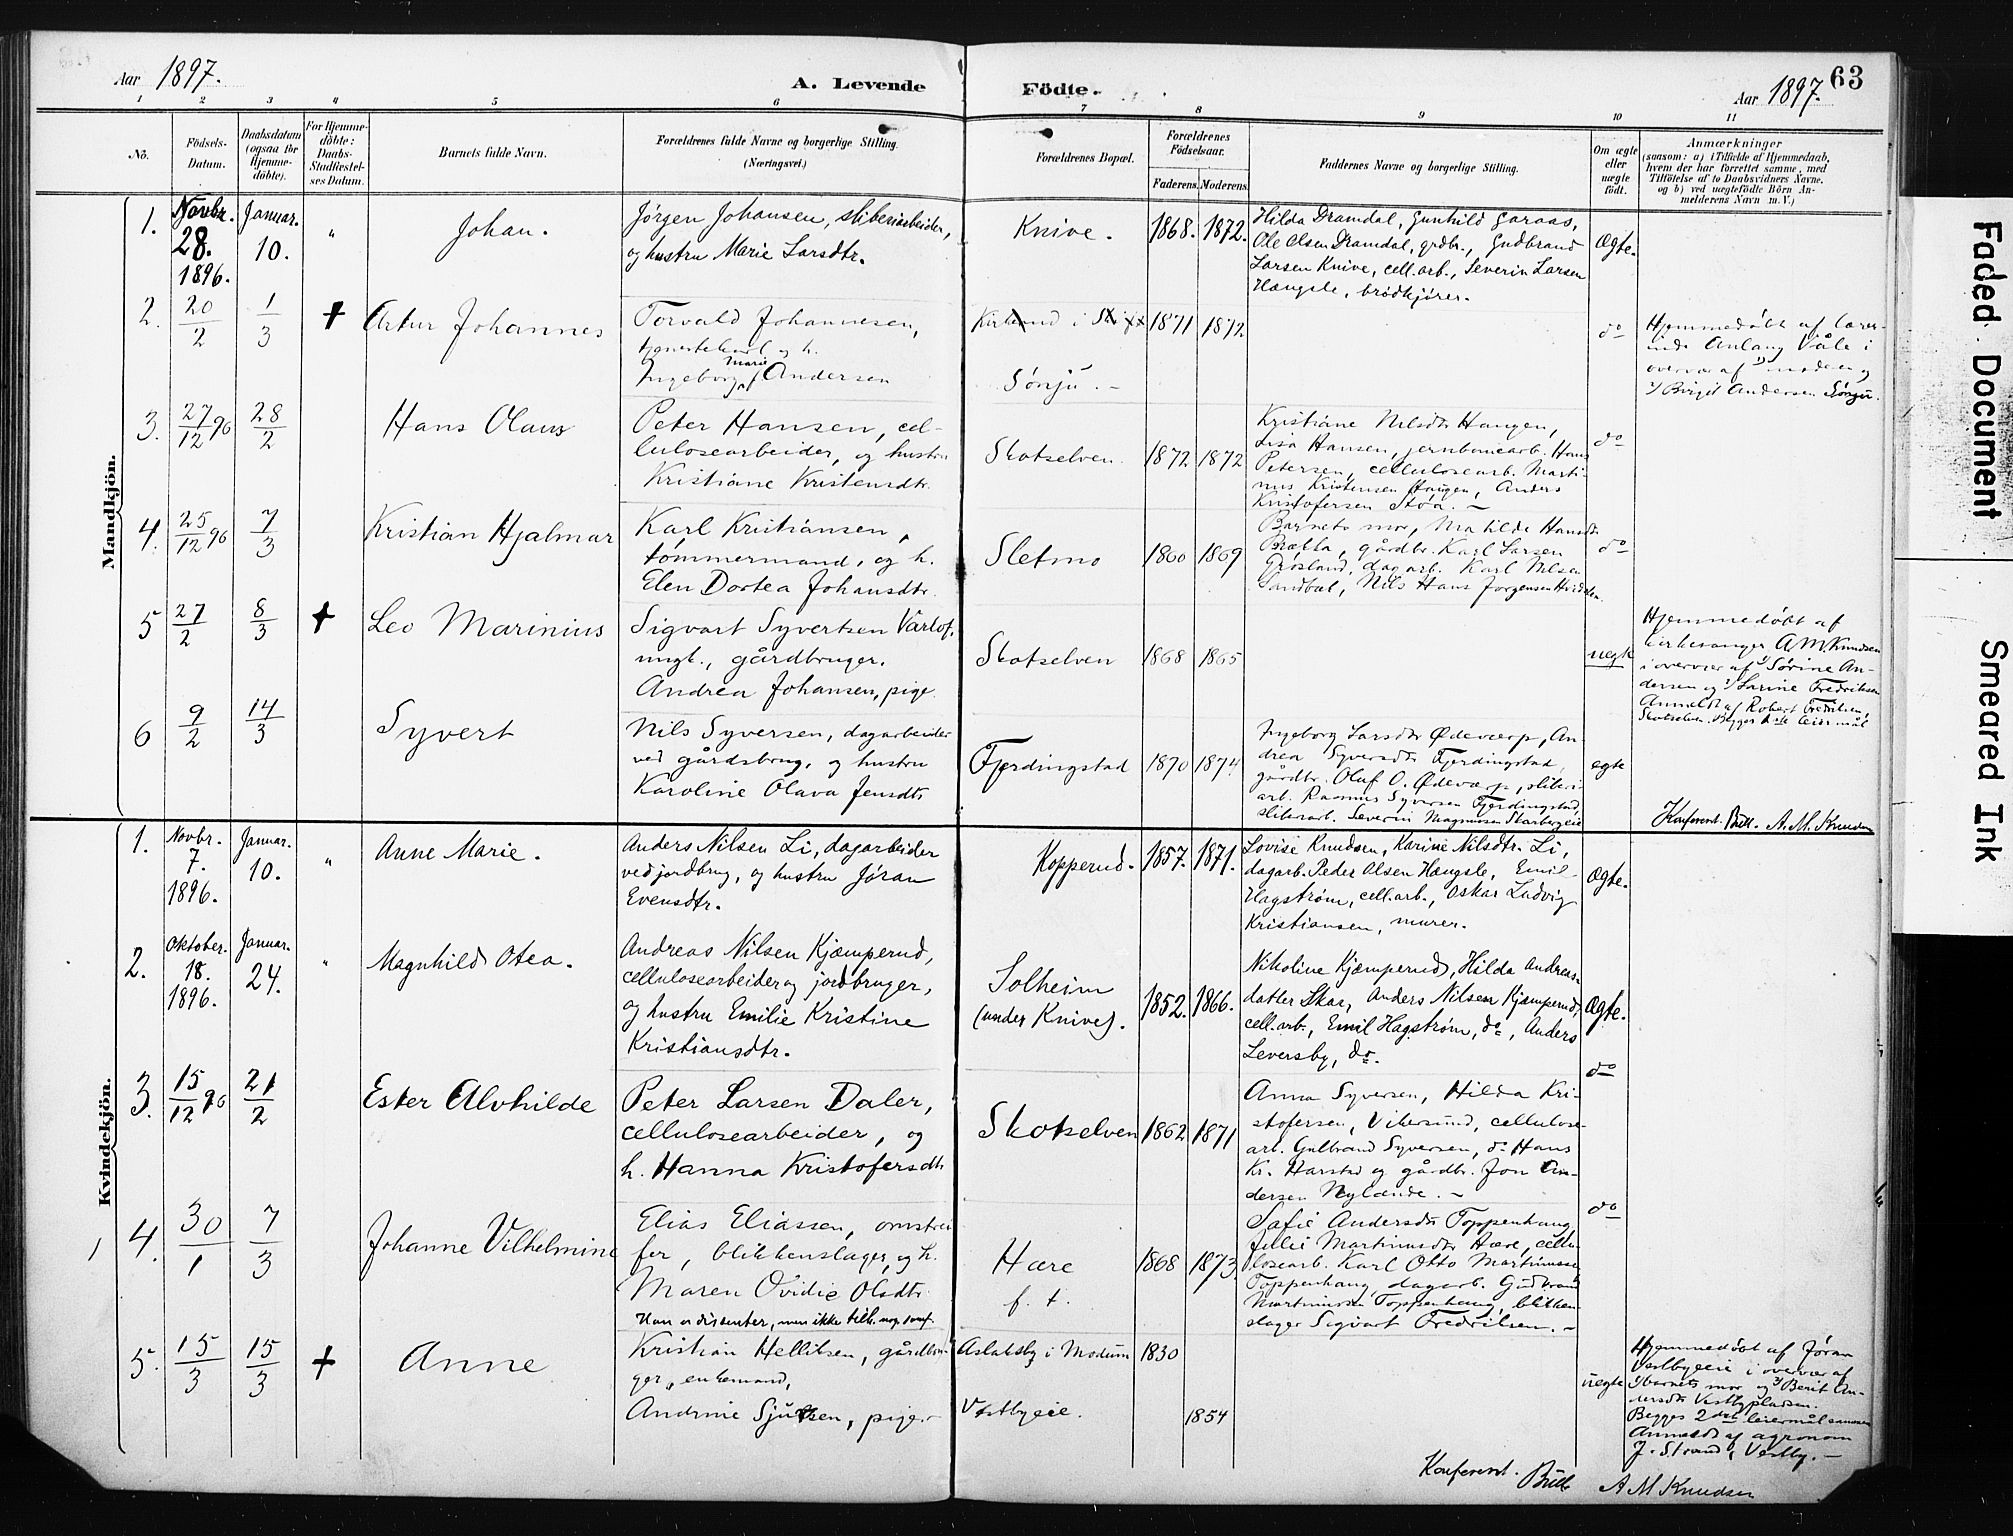 Aar 1897.
A. Levende Födte.
Aar 1897.
63
1 2 3 4 5 6 7 8 9 10 11
No.
Födsels-
Datum.
Daabsdatum
(ogsaa for
Hjemme-
döbte).
For Hjemme-
döbte:
Daabs-
Stadfæstel-
ses Datum.
Barnets fulde Navn.
Forældrenes fulde Navne og borgerlige Stilling.
(Næringsvei.)
Forældrenes Bopæl.
Forældrenes
Födselsaar.
Faderens. Moderens.
Faddernes Navne og borgerlige Stilling.
Om ægte
eller
uægte
født.
Anmærkninger
(saasom: a) i Tilfælde af Hjemmedaab,
hvem der har forrettet samme, med
Tilföielse af to Daabsvidners Navne,
og b) ved uægtefödte Börn An-
melderens Navn m. V.)
Mandkjön.
1.
Novbr.
28.
1896.
Januar.
10.
"
Johan.
Jørgen Johansen, sliberiarbeider,
og hustru Marie Larsdtr.
Knive.
1868. 1872.
Hilda Dramdal, Gunhild Garaas,
Ole Olsen Dramdal, grdbr., Gudbrand
Larsen Knive, cell.arb., Severin Larsen
Haugsle, brødkjører.
Ægte.
2.
20
2
1
3
+
Artur Johannes
Torvald Johannesen,
tjenestekarl og h.
Ingeborg Marie Andersen
i
Sønju. -
1871 1872
do
Hjemmedøbt af lærer-
inde Anlaug Våle i
overvær af 1) moderen og
2) Birgit Andersen Sønju.
3.
27
12 96
28
2
Hans Olaus
Peter Hansen, cel-
lulosearbeider, og hustru
Kristiane Kristensdtr.
Skotselven
1872 1872
Kristiane Nilsdtr Haugen,
Lisa Hansen, jernbanearb. Hans
Petersen, cellulosearb. Marti-
nus Kristensen Haugen, Anders
Kristofersen Støa. -
do
4.
25
12 96
7
3
Kristian Hjalmar
Karl Kristiansen,
tømmermand, og h.
Elen Dortea Johansdtr.
Sletmo
1860 1869
Barnets mor, Matilde Hansdtr
Brætta, gårdbr. Karl Larsen
Grøsland, dagarb. Karl Nilsen
Sandbæl, Nils Hans Jørgensen
do
5
27
2
8
3
+
Leo Marinius
Sigvart Syvertsen Varlo,
ungk., gårdbruger.
Andrea Johansen, pige.
Skotselven
1868 1865
uegte
Hjemmedøbt af
kirkesanger A M. Knudsen
i overvær af 1) Sørine An-
dersen og 2) Larine Fredriksen
Anmeldt af Robert Fredriksen,
Skotselven. Begges 1ste leiermål
6
9
2
14
3
Syvert
Nils Syversen, dagarbeider
ved gårdsbrug, og hustru
Karoline Olava Jensdtr
Fjerdingstad
1870 1874.
Ingeborg Larsdtr Ødeværp, An-
drea Syversdtr Fjerdingstad,
gårdbr. Oluf O. Ødeværp, sliberi-
arb. Rasmus Syversen Fjerdingstad,
sliberiarb. Severin Magnussen Skarbergeie
egte
Konferert. Bull. A. M. Knudsen
Kvindekjön.
1.
Novbr.
7.
1896.
Januar.
10.
"
Anne Marie.
Anders Nilsen Li, dagarbeider
ved jordbrug, og hustru Jøran
Evensdtr.
Kopperud.
1857. 1871.
Lovise Knudsen, Karine Nilsdtr. Li,
dagarb. Peder Olsen Haugsle, Emil
Hagstrøm, cell.arb., Oskar Ludvig
Kristiansen, murer.
Ægte.
2.
Oktober.
18.
1896.
Januar.
24.
"
Magnhild Otea.
Andreas Nilsen Kjæmperud,
cellulosearbeider og jordbruger,
og hustru Emilie Kristine
Kristiansdtr.
Solheim
(under Knive).
1852. 1866.
Nikoline Kjæmperud, Hilda Andreas-
datter Skaa, Anders Nilsen Kjæmperud,
cell.arb., Emil Hagstrøm, do, Anders
Leversby, do.
Ægte.
3.
15
12 96
21
2
Ester Alvhilde
Peter Larsen Daler,
cellulosearbeider, og
h. Hanna Kristofersdtr
Skotselven
1862 1871
Anna Syversen, Hilda Kri-
stofersen, Vikersund, cellulose-
arb. Gulbrand Syversen, do Hans
Kr. Harstad og gårdbr. Jon An-
dersen Nylænde. -
do
4.
30
1
7
3
Johanne Vilhelmine
Elias Eliassen, omstrei-
fer, blikkenslager, og h.
Maren Ovidie Olsdtr
Han er dissenter, men ikke tilh. nog. samf.
Hære
f. t.
1868 1873.
Sofie Andersdtr Toppenhaug,
Julie Martinusdtr Hære, cellu-
losearb. Karl Otto Martinussen
Toppenhaug, dagarb. Gudbrand
Martinusen Toppenhaug, blikken-
slager Sigvart Fredriksen. -
do
5.
15
3
15
3
+
Anne
Kristian Hellibsen, gårdbru-
ger, enkemand,
Andrine Sjursen, pige. -
Aslaksby i Modum
Vestbyeie.
1830
1854
uegte
Hjemmedøbt af Jøran
Vestbyeie i overvær af
1) barnets mor og 2) Berit An-
dersdtr Vestbypladsen.
Begges 2det leiermål sammen
Anmeldt af agronom
J. Strand, Vestby. -
Konferert. Bull A M Knudsen
Faded Document
Smeared Ink